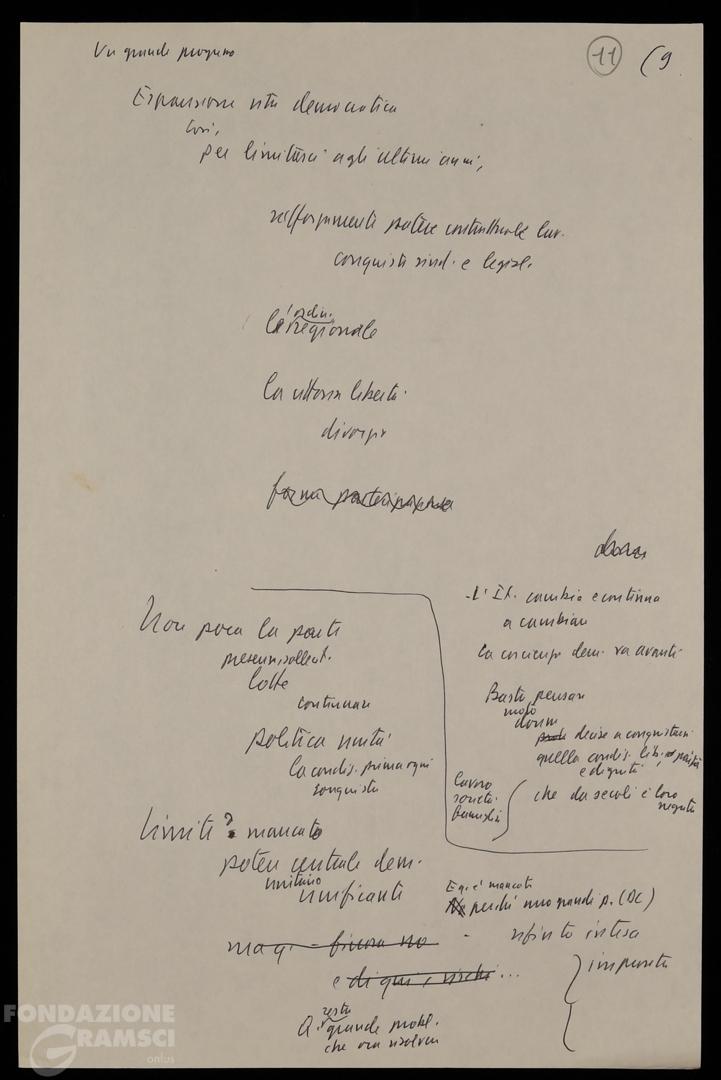 Un grande progresso
11 (9
Espansione vita democratica
Così,
per limitarci agli ultimi anni,
rafforzamento potere contrattuale lav.
conquiste sind. e legisl.
l'ordin.
regionale
la vittoria libertà
divorzio
forma partecipazione
donne
Non poca la parte
lotte
continuare
politica unità
la condiz. prima ogni
conquista
-L'It. cambia e continua
a cambiare
la coscienza dem. va avanti
Basti pensare
moto
donne
decise a conquistare
quella condiz. lib., parità
e dignità
che da secoli è loro
negata
lavoro
società
famiglia
Limiti? mancato
potere centrale dem.
unitario
unificante
E qui è mancato
perché uno grandi p. (DC)
rifiuto intesa
magg. - finora no -
e di qui i rischi ...
imponente
resta
grande probl.
che ora risolvere
FONDAZIONE
GRAMSCI
onlus